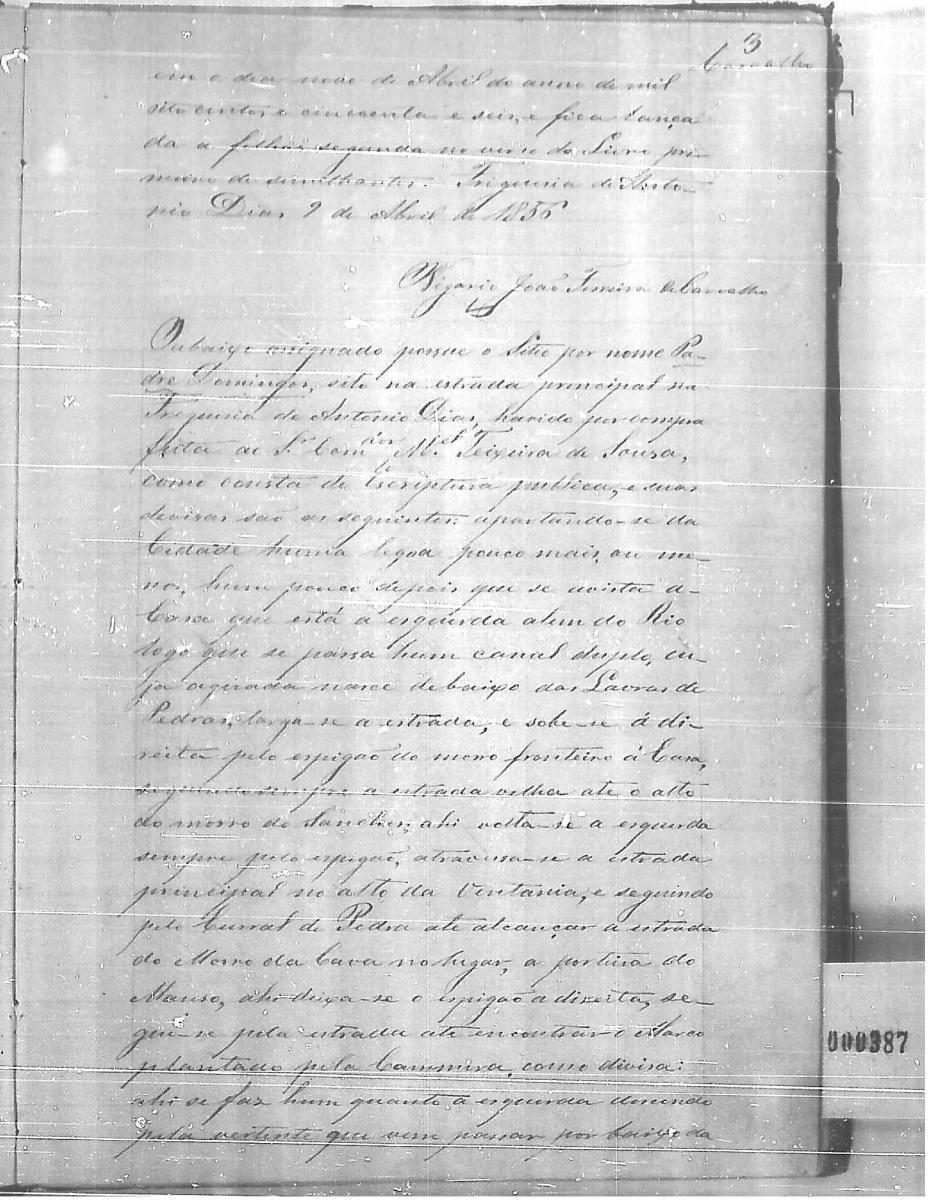 3
Carvalho
em o dia nove de Abril do anno de mil
oito centos e cincoenta e seis, e fica lança
da a folhas segunda no verso do Livro pri-
meiro de similhantes. Freguesia de Anto-
nio Dias 9 de Abril de 1856
Vigario João Ferreira de Carvalho
O abaixo assignado possue o Sitio por nome Pa-
dre Domingos, sito na estrada principal na
Freguesia de Antonio Dias, havido por compra
feita ao Sr. Comdor Mel Teixeira de Sousa,
como consta de Escriptura publica, e suas
divisas são as seguintes: apartando-se da
Cidade huma legoa pouco mais, ou me-
nos, hum pouco depois que se avista a
Casa que está a esquerda alem do Rio
logo que se passa hum canal duplo, cu-
ja aguada nasce debaixo das Lavras de
Pedras, larga-se a estrada, e sobe-se á di-
reita pelo espigão do morro fronteiro á Casa,
seguindo sempre a estrada velha até o alto
do morro do Sanches, ahi volta-se a esquerda
sempre pelo espigão, atravessa-se a estrada
principal no alto da Ventania, e seguindo
pelo Curral de Pedra até alcançar a estrada
do Morro da Cava no lugar, a porteira do
Manso, ahi deixa-se o espigão a direita, se-
gue-se pela estrada até encontrar o Marco
plantado pela Cammara, como divisa:
ahi se faz hum quanto a esquerda descendo
pela vertente que vem passar por baixo da
000387